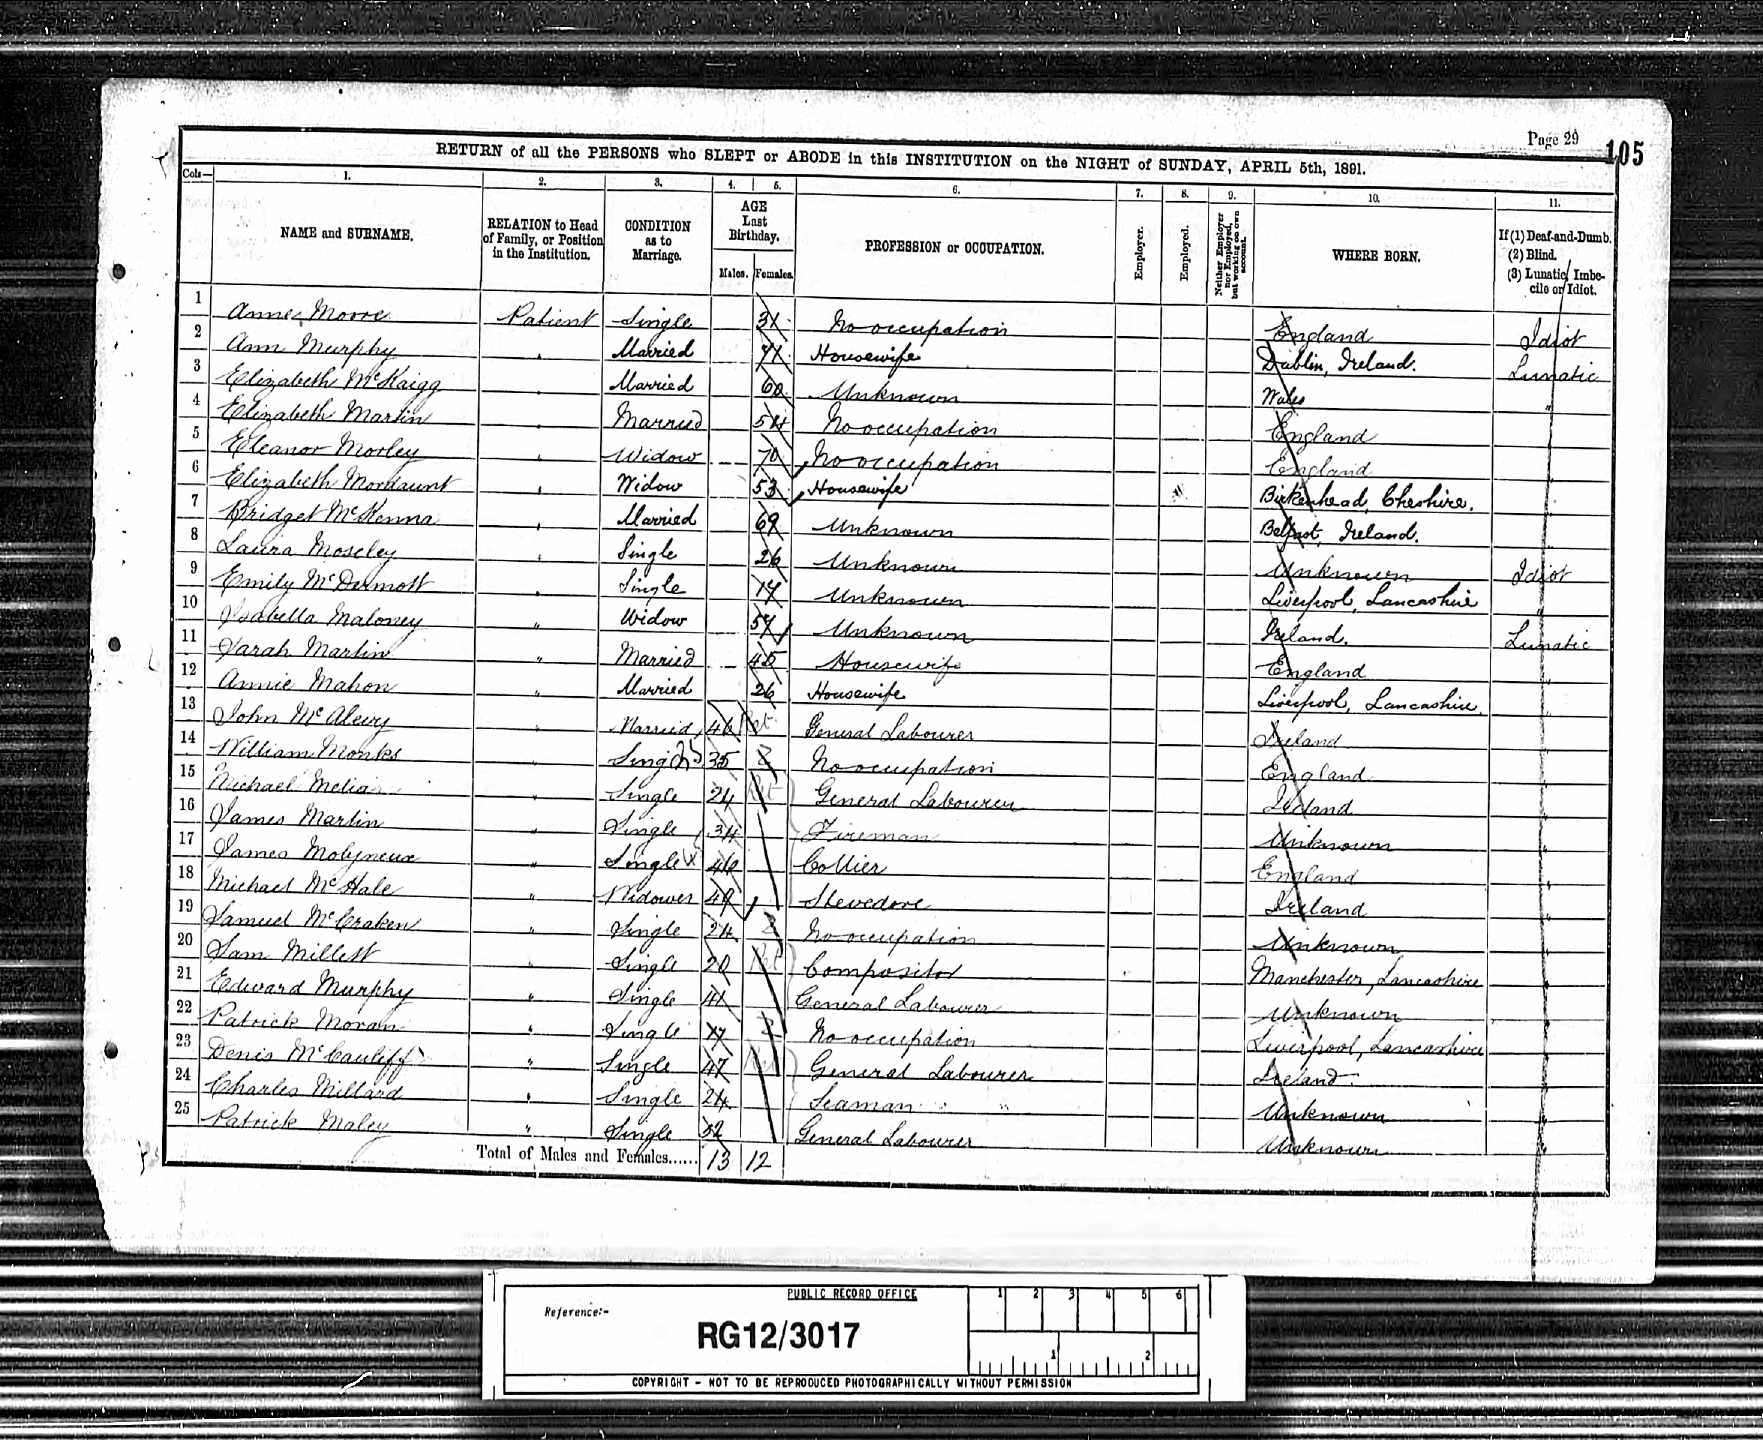 Page 29
105
RETURN of all the PERSONS who SLEPT or ABODE in this INSTITUTION on the NIGHT of SUNDAY, APRIL 5th, 1891.
Cols— 1. 2. 3. 4. 5. 6. 7. 8. 9. 10. 11.
NAME and SURNAME.
RELATION to Head of Family, or Position in the Institution.
CONDITION as to Marriage.
AGE Last Birthday.
Males. Females.
PROFESSION or OCCUPATION.
Employer.
Employed.
Neither Employer nor Employed, but working on own account.
WHERE BORN.
If (1) Deaf-and-Dumb.
(2) Blind.
(3) Lunatic, Imbecile or Idiot.
1 Anne Moore Patient Single 31 No occupation England Idiot
2 Ann Murphy " Married 71 Housewife Dublin, Ireland. Lunatic
3 Elizabeth McKaigg " Married 60 Unknown Wales "
4 Elizabeth Martin " Married 54 No occupation England "
5 Eleanor Morley " Widow 70 No occupation England "
6 Elizabeth Mordaunt " Widow 53 Housewife Birkenhead, Cheshire. "
7 Bridget McKenna " Married 69 Unknown Belfast, Ireland. "
8 Laura Moseley " Single 26 Unknown Unknown Idiot
9 Emily McDermott " Single 17 Unknown Liverpool, Lancashire "
10 Isabella Maloney " Widow 57 Unknown Ireland. Lunatic
11 Sarah Martin " Married 45 Housewife England "
12 Annie Mahon " Married 26 Housewife Liverpool, Lancashire. "
13 John McAlevy " Married 40 General Labourer Ireland "
14 William Monks " Single 35 No occupation England "
15 Michael Melia " Single 24 General Labourer Ireland "
16 James Martin " Single 34 Fireman Unknown "
17 James Molyneux " Single 40 Collier England "
18 Michael McHale " Widower 49 Stevedore Ireland "
19 Samuel McCraken " Single 24 No occupation Unknown "
20 Sam Millett " Single 20 Compositor Manchester, Lancashire "
21 Edward Murphy " Single 41 General Labourer Unknown "
22 Patrick Moran " Single 17 No occupation Liverpool, Lancashire "
23 Denis McCauliff " Single 47 General Labourer Ireland "
24 Charles Millard " Single 24 Seaman Unknown "
25 Patrick Maley " Single 32 General Labourer Unknown "
Total of Males and Females...... 13 12
PUBLIC RECORD OFFICE
Reference:-
RG12/3017
1 2 3 4 5 6
1 2
COPYRIGHT - NOT TO BE REPRODUCED PHOTOGRAPHICALLY WITHOUT PERMISSION